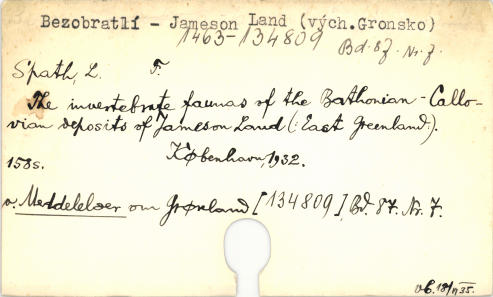 Bezobratlí - Jameson Land (vých.Gronsko)
1463-134809 Bd. 87. Nr. 7.
Spath, L. F.
The invertebrate faunas of the Bathonian-Callo-
vian deposits of Jameson Land (:East Greenland:).
158s. København, 1932.
v. Meddelelser om Grønland [134809], Bd. 87. Nr. 7.